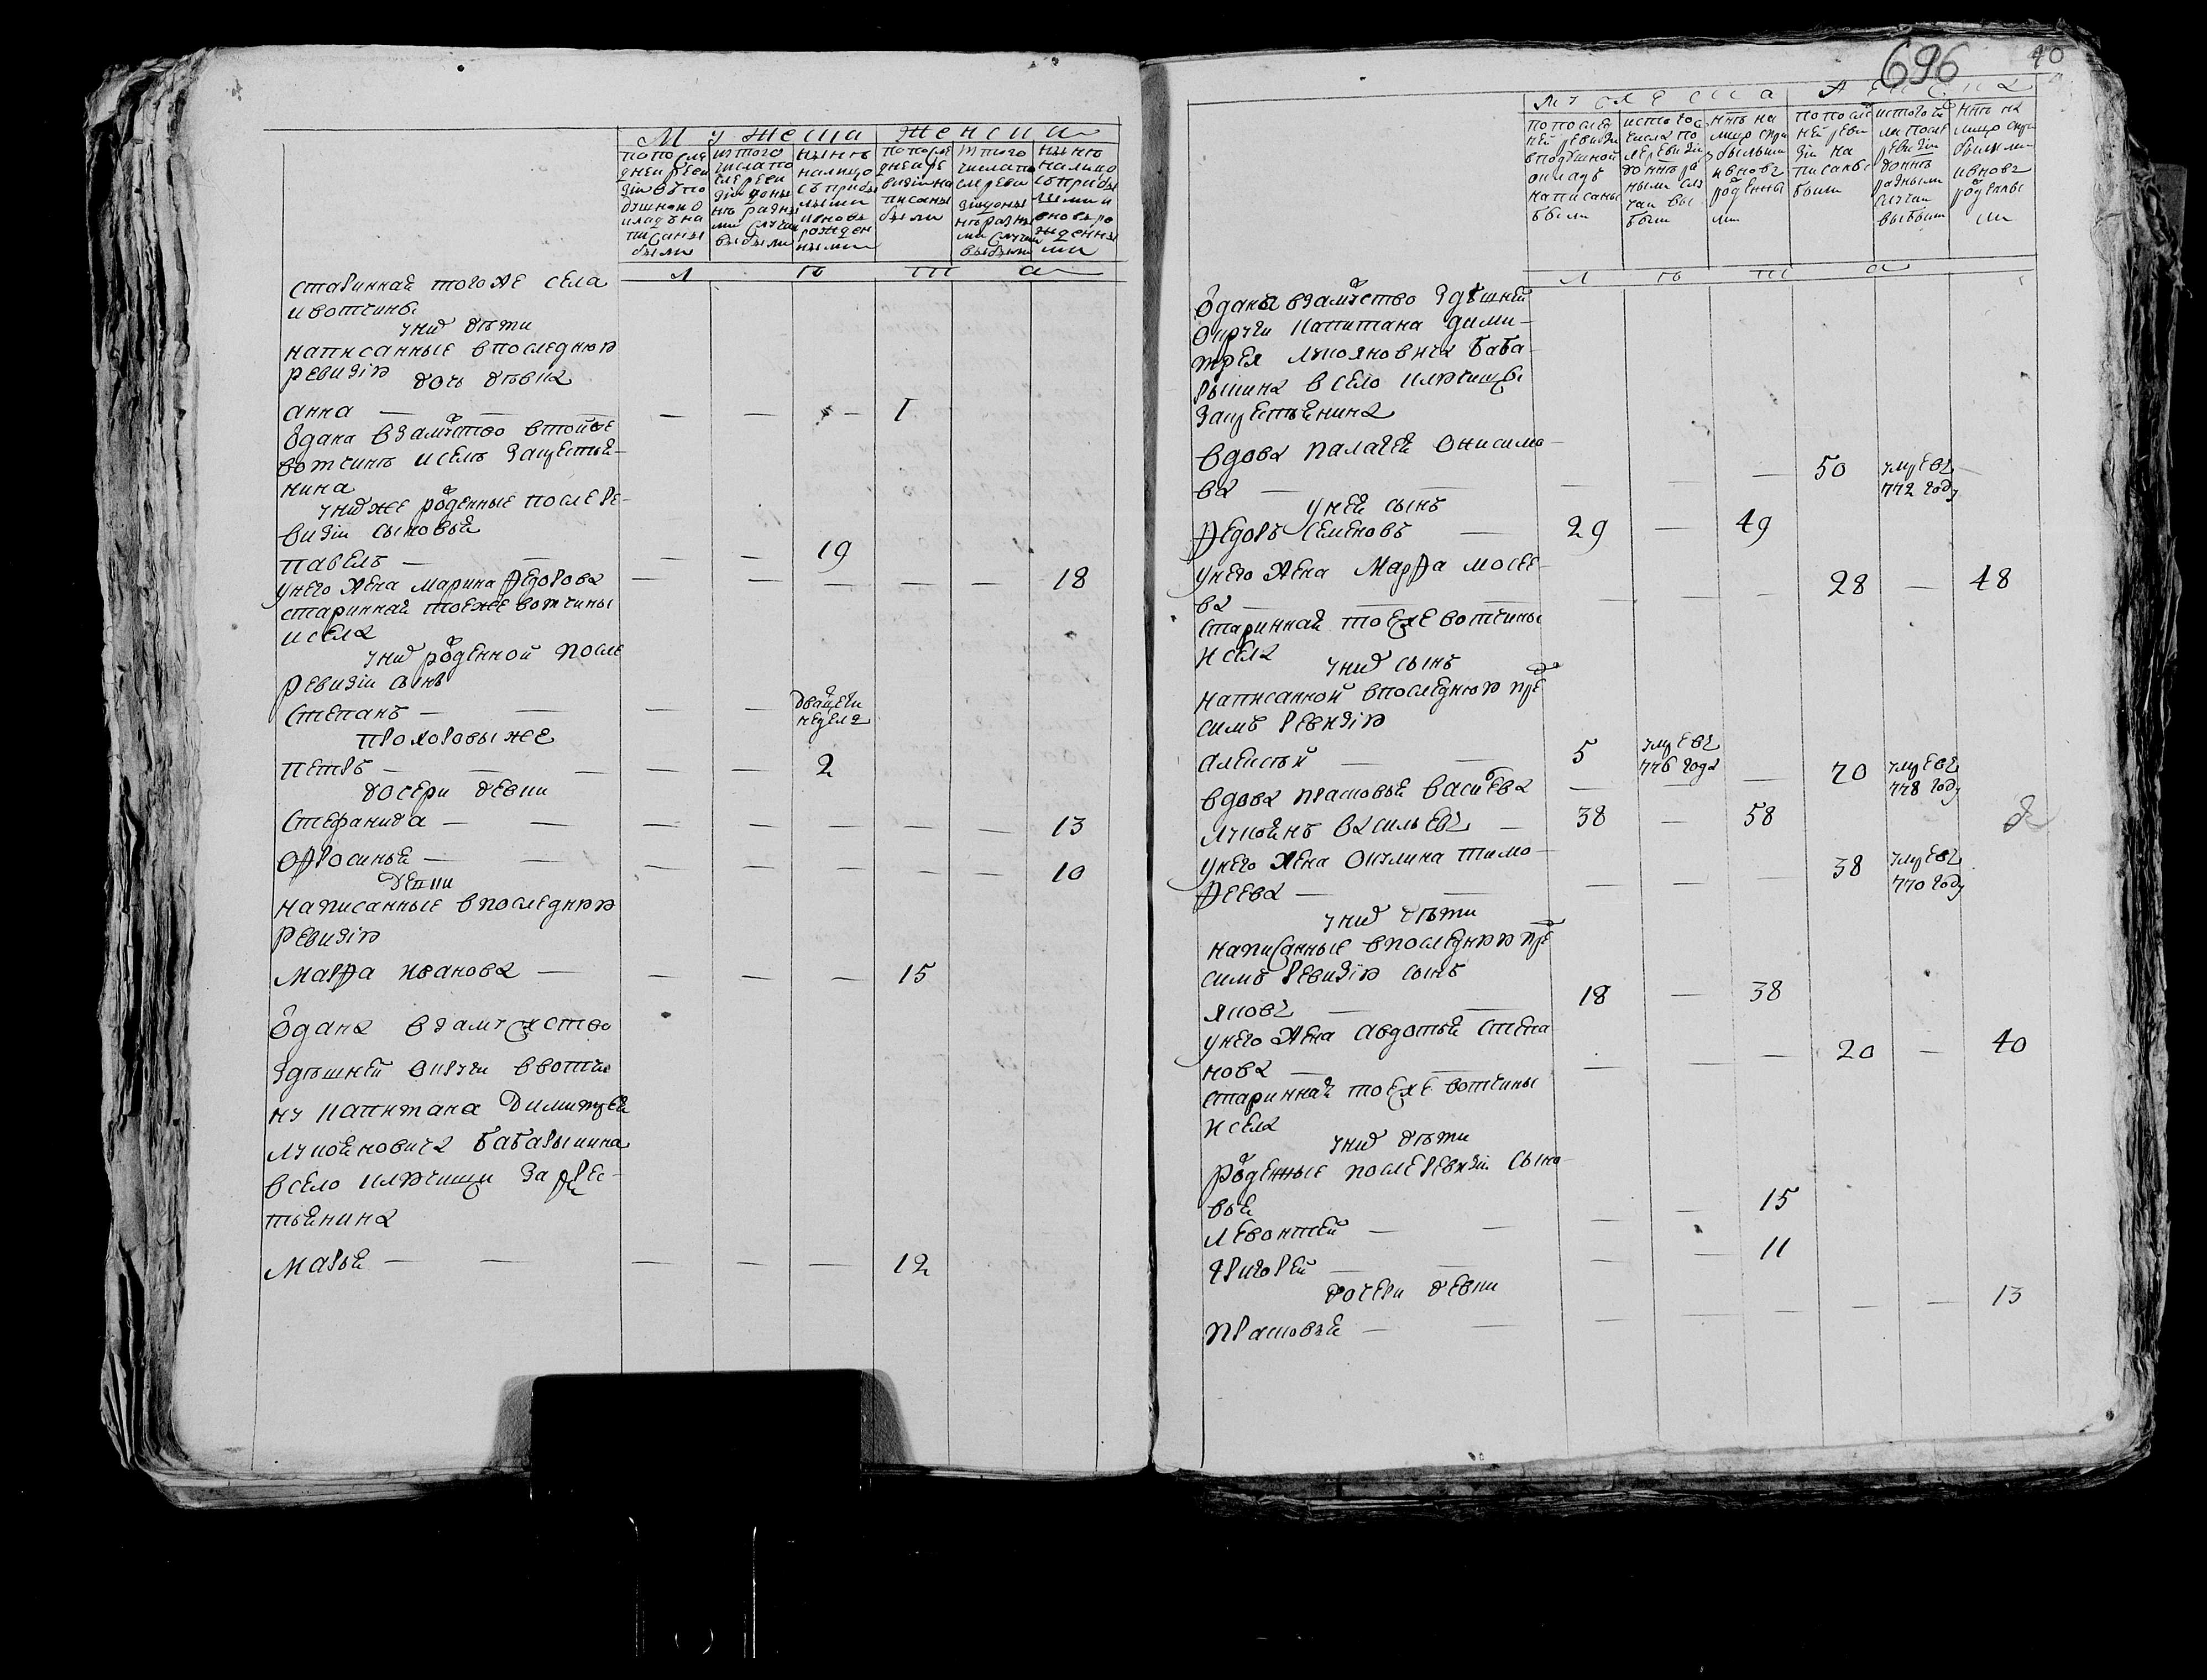 Мужеска Женска
попосле
дней реви
зіи въпо
душномъ
окладѣ на
писаны
были
изтого
числа по
сле реви
зіи доны
нѣ разны
ми случаи
выбыли
нынѣ
налицо
съприбы
лыми
ивновь
рожден
ными
попосле
дней ре
визіи на
писаны
были
изтого
числа по
сле реви
зіи доны
нѣ разны
ми случаи
выбыли
нынѣ
налицо
съприбы
лыми и
вновь ро
жденны
ми
л ѣ т а
старинная тогоже села
ивотчины
уних дѣти
написанные впоследнюю
ревизію дочь дѣвка
анна — — — — — 1
одана взамуство втойже
вотчинѣ иселѣ закрестья-
нина
унихже рожденные после ре-
визіи сыновья
павелъ — — — — 19
унего жена марина Федорова — — — — — 18
старинная тоеже вотчины
исела
уних рожденной после
ревизіи сынъ
степанъ — — — — двацеть
недель
прохоровы же
петръ — — — — — 2
дочери девки
стефанида — — — — — — — 13
офросинья — — — — — — — 10
детки
написанные впоследнюю
ревизію
марфа иванова — — — — 15
одана взамужство
здѣшней округи ввотчи
ну капитана димитрея
лукьяновича бабарыкина
всело ключищи за крес-
тьянина
марья — — — — — 12
696 40
мужеска женска
попослед
ней ревизіи
вподушной
окладъ
написаны
были
истого
числа по
сле ревизіи
донынѣ ра
зными слу
чаи вы
были
ннѣ на
лицо спри
былыми
ивновь
рожденны
ми
попослед
ней реви
зіи на
писаны
были
истого чи
ла после
ревизіи
донынѣ
разными
случаи
выбыли
ннѣ на
лицо спри
былыми
ивновь
рожденны
ми
л ѣ т а
одана взамуство здѣшней
округи капитана дими-
трея лукояновича баба-
рыкина всело ключищи
закрестьянина
вдова палагея онисимо-
ва — — — — 50 умре въ
772 году —
уней сынъ
Федоръ семеновъ — 29 — 49
унего жена Марфа мосее-
ва — — — — — 28 — 48
старинная тоеже вотчины
и села
уних сынъ
написанной впоследнюю пре
симъ ревизію
алексѣй — — 5 умре въ
776 года —
вдова прасковья васильева — — 70 умре въ
778 году
лукоянъ васильевъ — 38 — 58
унего жена окулина тимо-
феева — — — — — 38 умре въ
770 году
уних дѣти
написанные впоследнюю пре
симъ ревизію сынъ
яковъ — — 18 — 38
унего жена авдотья степа
нова — — — — — 20 — 40
старинная тоеже вотчины
и села
уних дѣти
рожденные после ревизіи сыно-
вья
левонтей — — — — 15
григорей — — — — 11
дочери девки
прасковья — — — — — — — 13